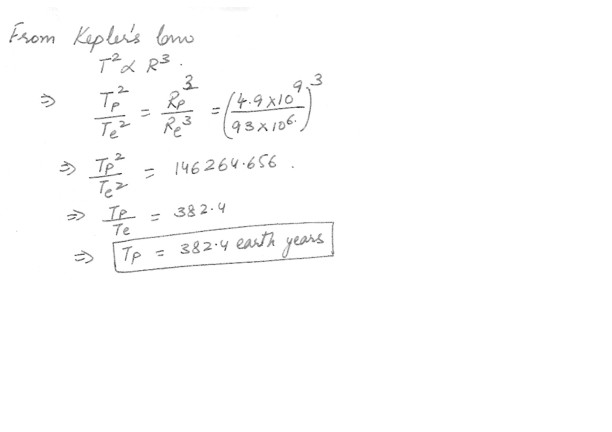 From Kepler's law
T² ∝ R³ .
⇒ Tp²/Te² = Rp³/Re³ = (4.9×10⁹/93×10⁶.)³
⇒ Tp²/Te² = 146264.656 .
⇒ Tp/Te = 382.4
⇒ Tp = 382.4 earth years